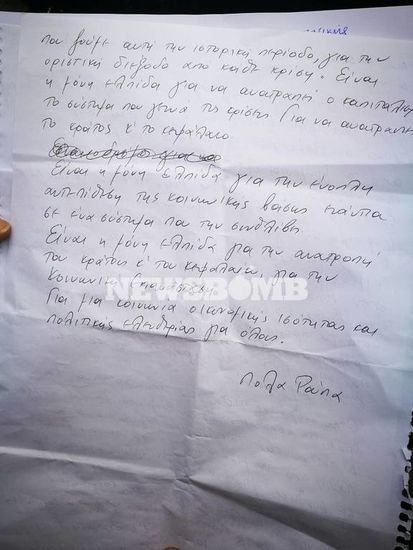 που ζούμε αυτή την ιστορική περίοδο, για την
οριστική διέξοδο από κάθε κρίση. Είναι
η μόνη ελπίδα για να ανατραπεί ο καπιταλισμ
το σύστημα που γεννά τις κρίσεις. Για να ανατραπεί
το κράτος κ' το κεφάλαιο.
Είναι η μόνη ελπίδα για την ένοπλη
αντεπίθεση της κοινωνικής βάσης ενάντια
σε ένα σύστημα που την συνθλίβει.
Είναι η μόνη ελπίδα για την ανατροπή
του κράτους κ' του κεφαλαίου, για την
κοινωνική επανάσταση.
Για μια κοινωνία οικονομικής ισότητας και
πολιτικής ελευθερίας για όλους.
Πόλα Ρούπα
NEWSBOMB